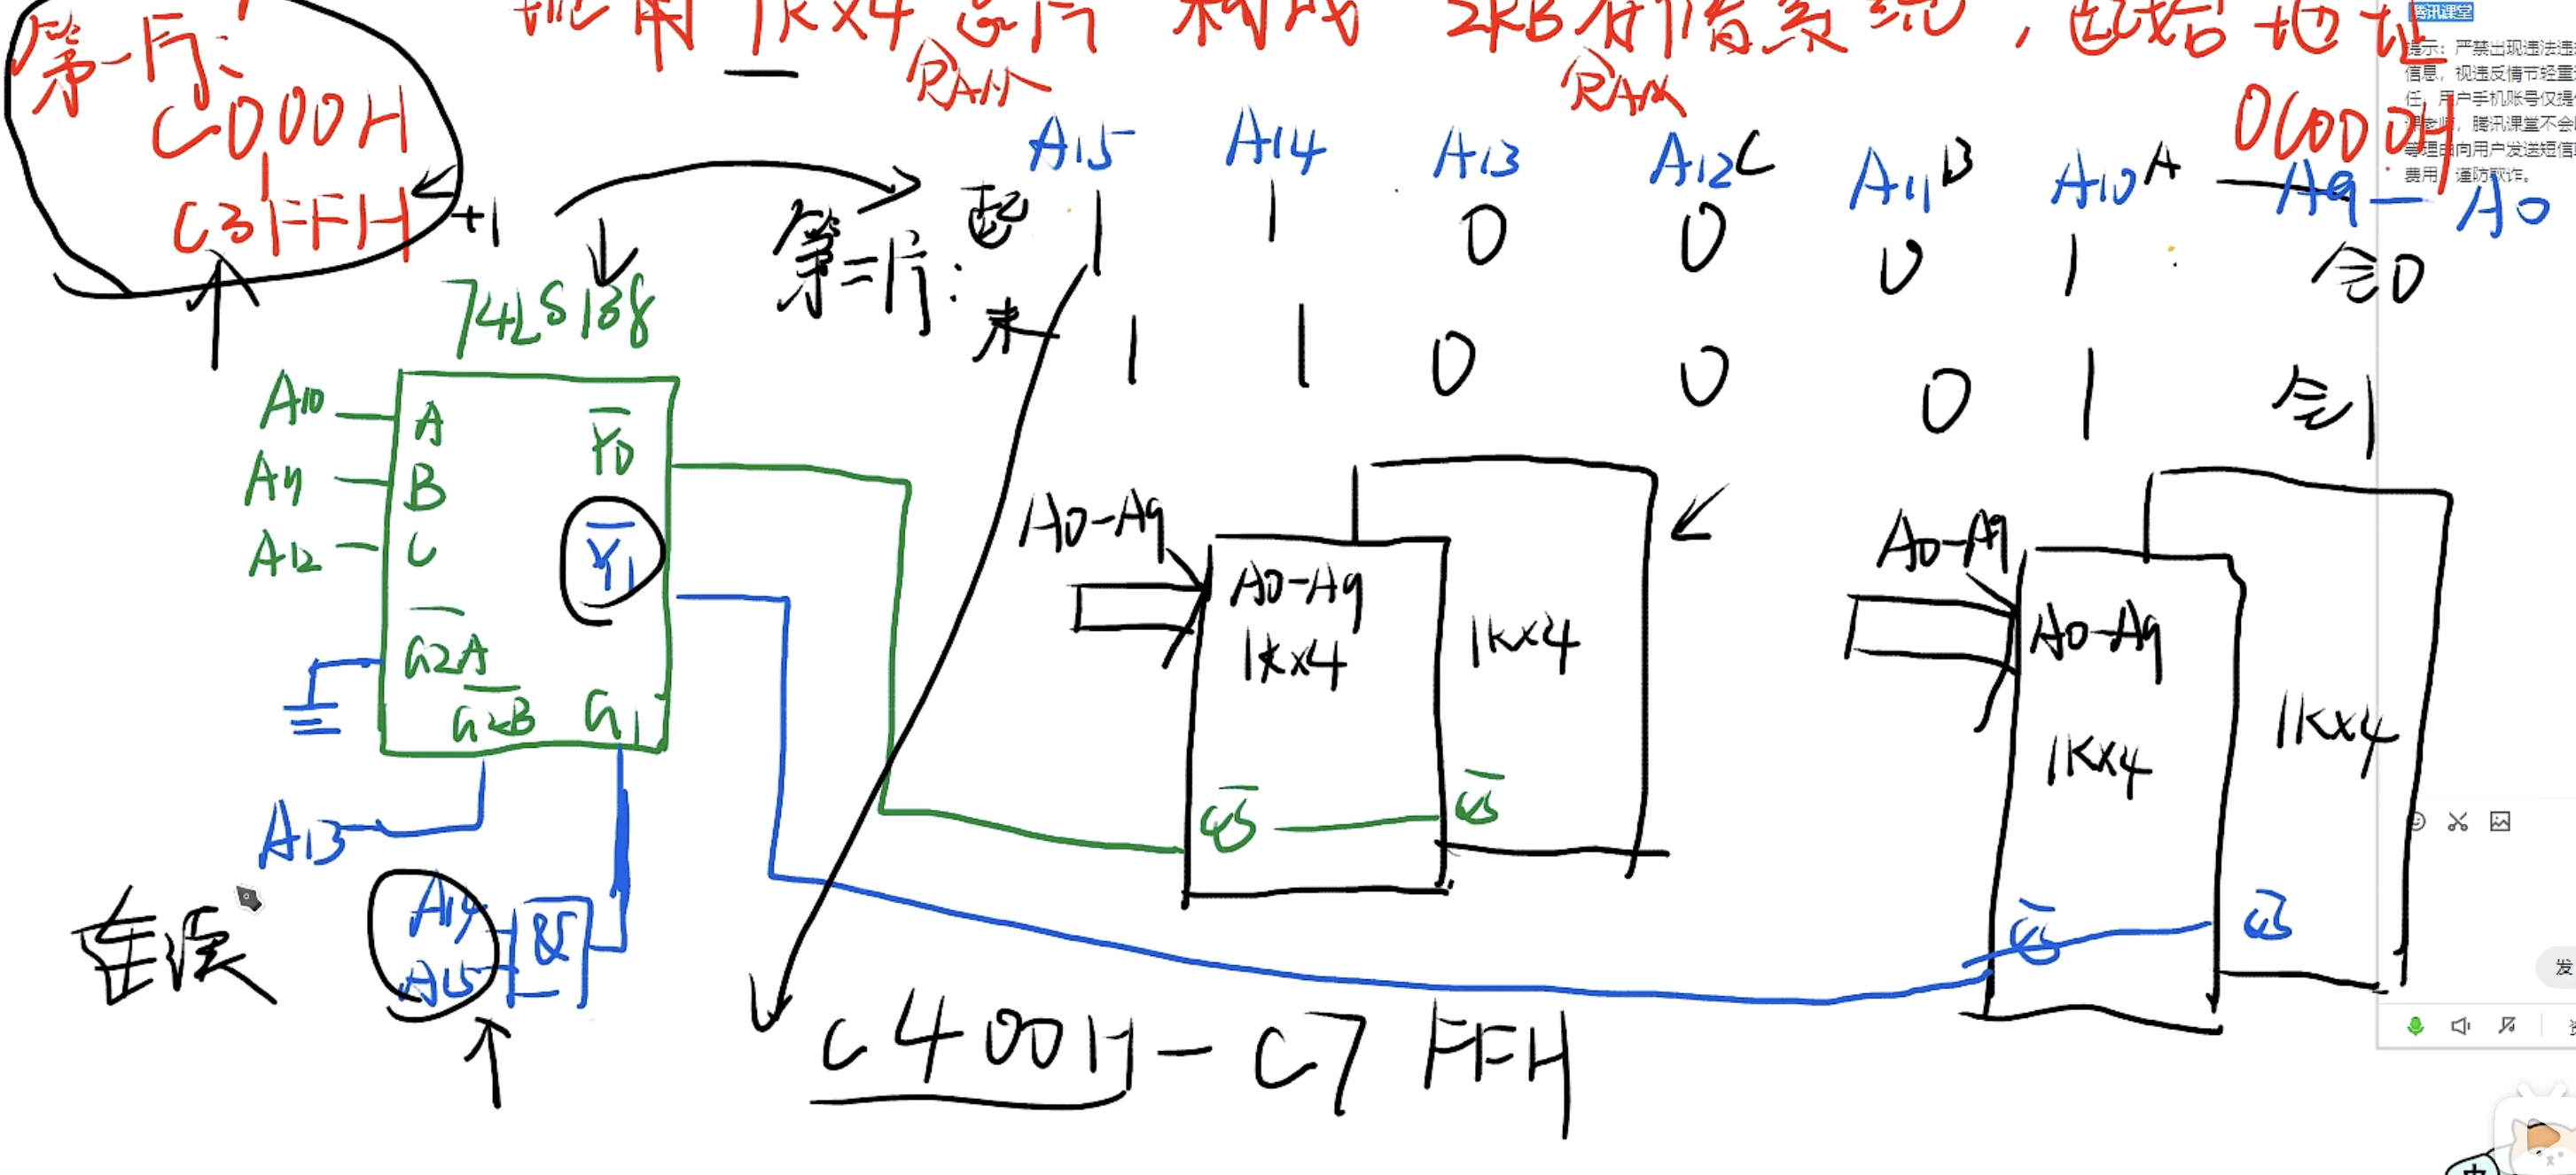 现用 1K×4 芯片 构成 2KB存储系统，起始地址
RAM RAM
0C000H
第一片:
C000H
C3FFH
+1
A15 A14 A13 A12 C A11 B A10 A A9 — A0
第二片: 起 1 1 0 0 0 1 全0
末 1 1 0 0 0 1 全1
74LS138
A10 A Y0
A11 B Y1
A12 C
G2A
G2B G1
A13
A14
A15 &
A0-A9
A0-A9
1K×4
1K×4
CS CS
A0-A9
A0-A9
1K×4
1K×4
CS CS
C400H - C7FFH
腾讯课堂
提示：严禁出现违法违
信息，视违反情节轻重
任，用户手机账号仅提
腾讯课堂不会
等理由向用户发送短信
费用，谨防欺诈。
发
中